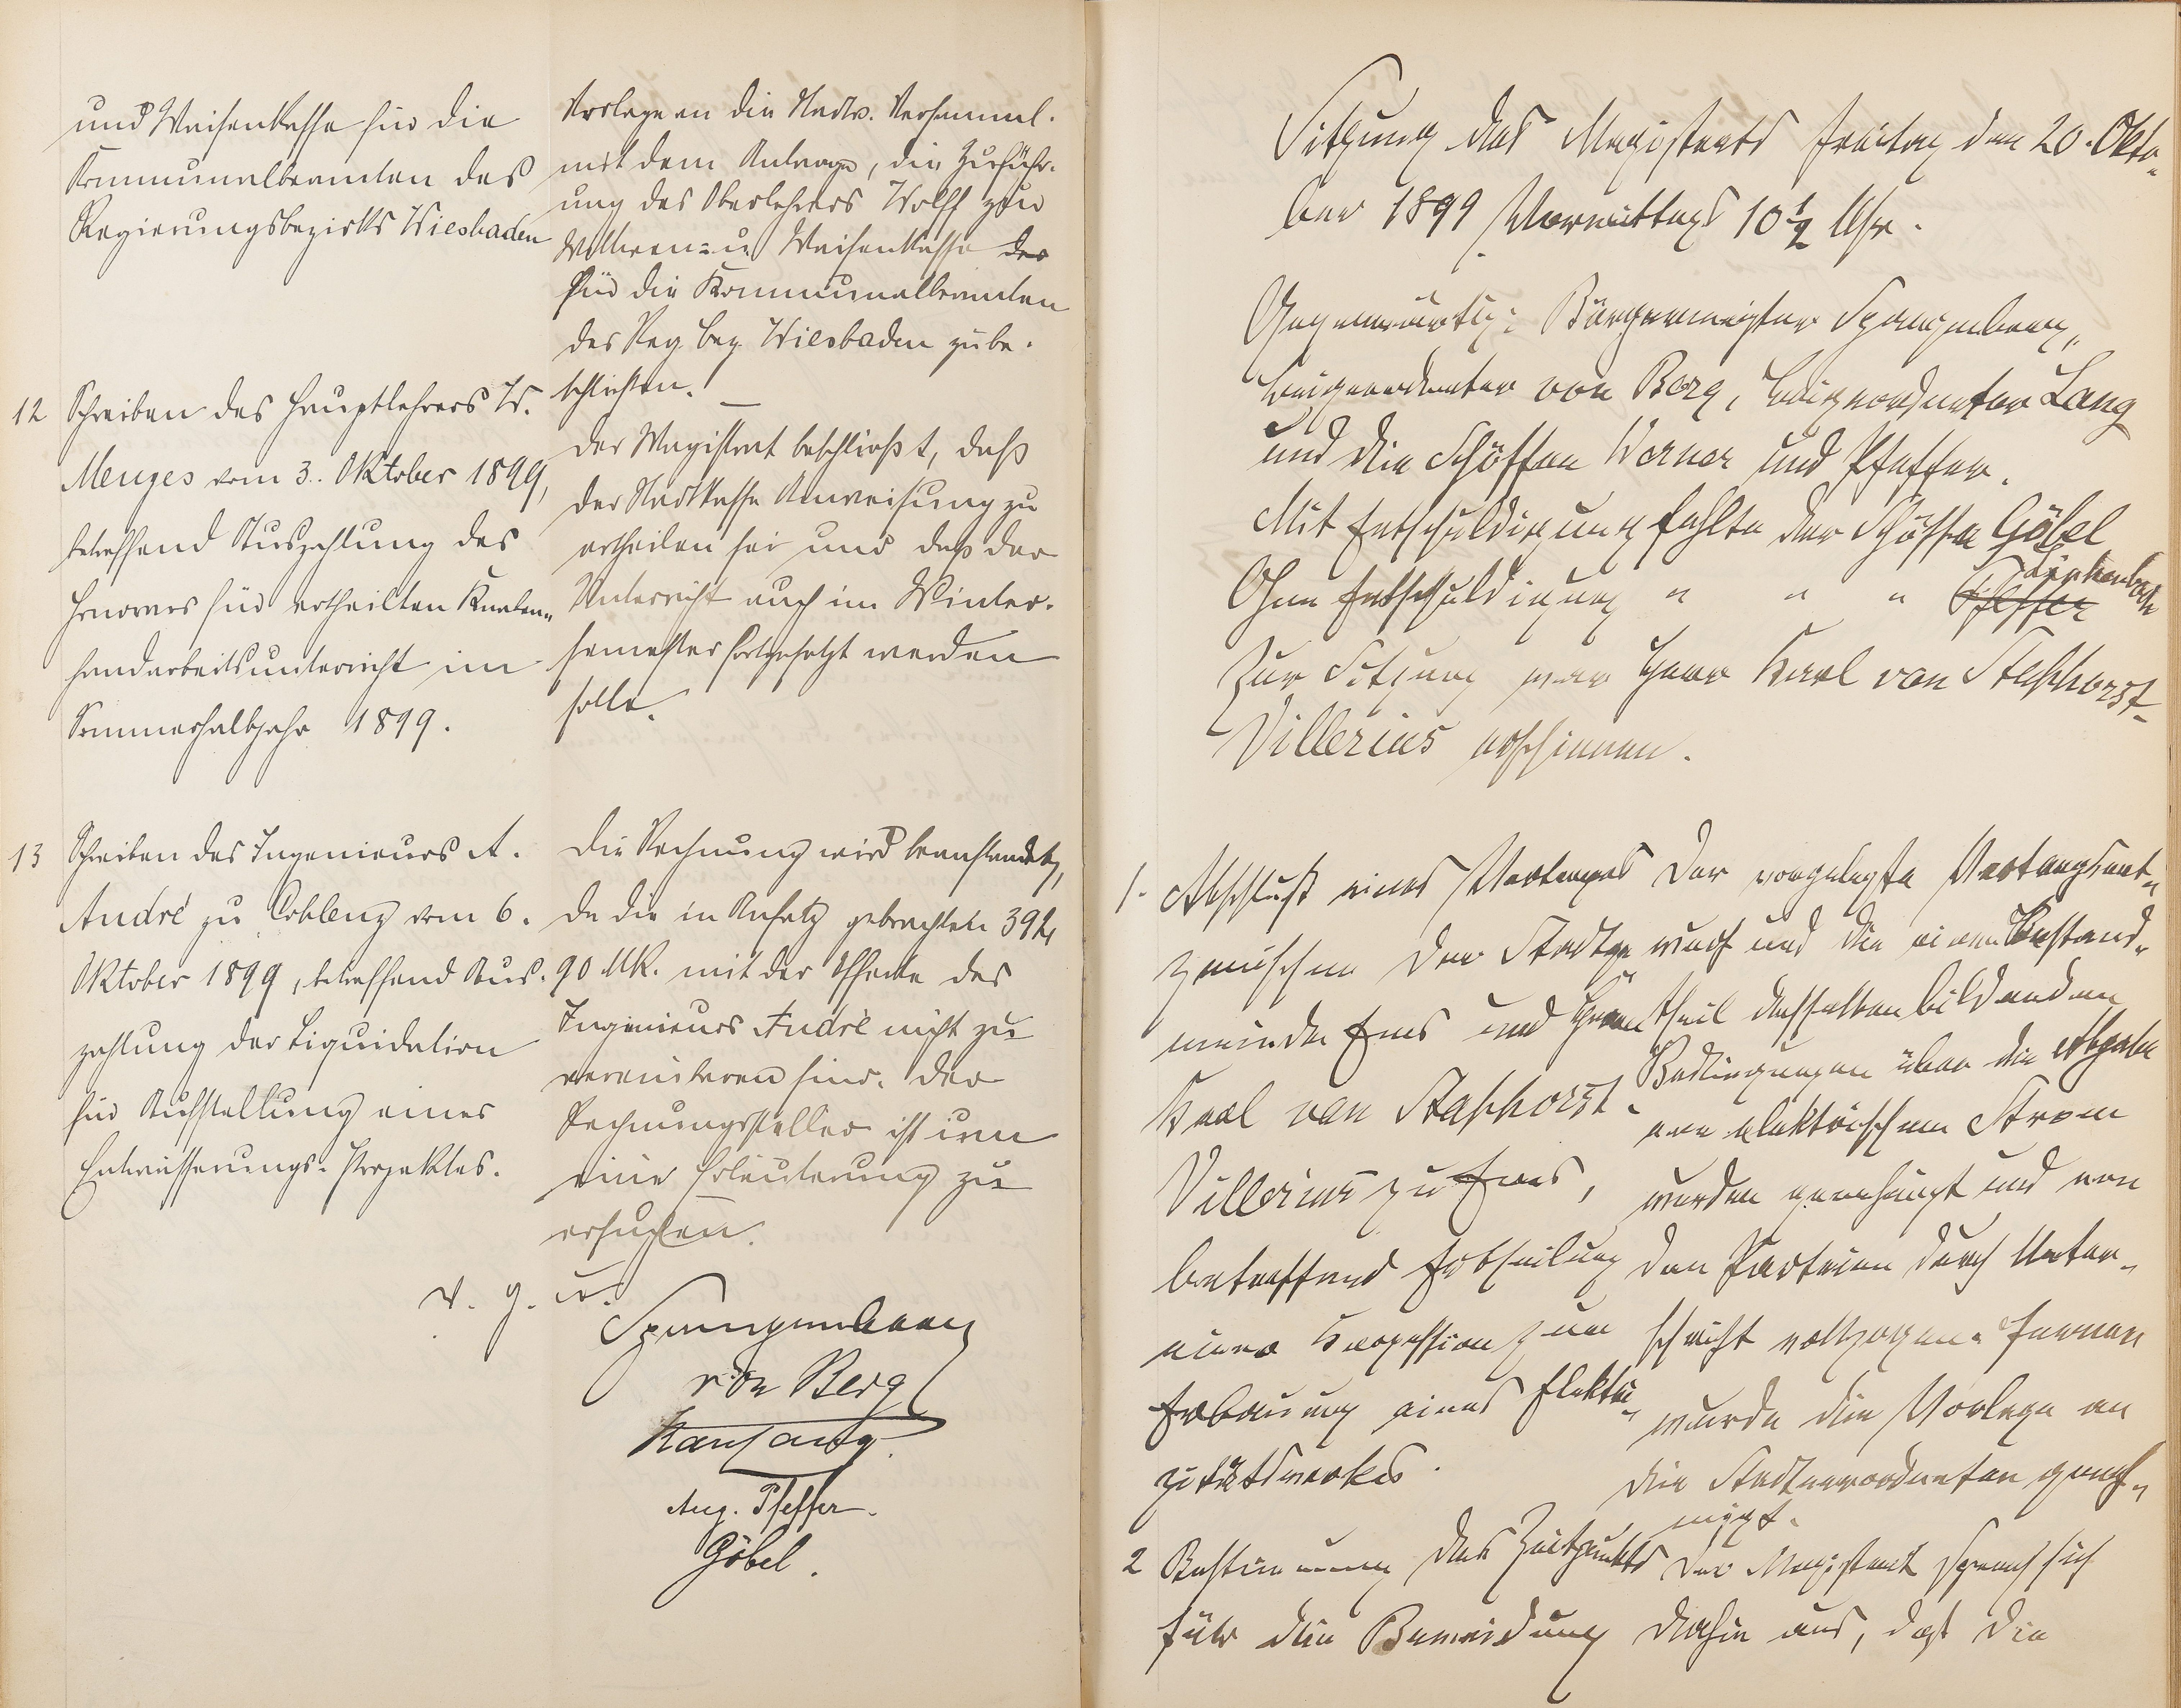 und Waisenkasse für die
Kommunalbeamten des
Regierungsbezirks Wiesbaden
Vorlage an die Stadtv. Versamml.
mit dem Antrage, die Zuführ-
ung des Oberlehrers Wolff zur
Wittwen- u. Waisenkasse der
für die Kommunalbeamten
des Reg. bez. Wiesbaden zu be-
schließen.
12 Schreiben des Hauptlehrers W.
Menges vom 3. Oktober 1899,
betreffend Auszahlung des
Honorars für ertheilten Knaben-
handarbeitsunterricht im
Sommerhalbjahr 1899.
Der Magistrat beschließt, daß
der Stadtkasse Anweisung zu
ertheilen sei und daß der
Unterricht auch im Winter-
semester fortgesetzt werden
solle.
13 Schreiben des Ingenieurs A.
André zu Coblenz vom 6.
Oktober 1899, betreffend Aus-
zahlung der Liquidation
für Aufstellung eines
Entwässerungs-Projektes.
Die Rechnung wird beanstandet,
da die in Ansatz gebrachten 392,
90 Mk. mit der Offerte des
Ingenieurs André nicht zu
vereinbaren sind. Der
Rechnungssteller ist um
eine Erläuterung zu
ersuchen.
v. g. u.
Spangenberg
von Berg
Karl Lang
Aug. Pfeffer.
Göbel.
Sitzung des Magistrats Freitag den 20. Okto-
ber 1899 Vormittags 10 1/2 Uhr.
Gegenwärtig: Bürgermeister Spangenberg,
Beigeordneter von Berg, Beigeordneter Lang
und die Schöffen Werner und Pfeffer.
Mit Entschuldigung fehlte der Schöffe Göbel
Ohne Entschuldigung " " " Pfeffer
Zur Sitzung war Herr Karl van Staphorst-
Villerius erschienen.
1. Abschluß eines Vertrages
zwischen der Stadtge-
meinde Ems und Herrn
Karl van Staphorst-
Villerius zu Ems,
betreffend Ertheilung
einer Konzession zur
Erbauung eines Elektri-
zitätswerkes.
Der vorgelegte Vertragsent-
wurf und die einen Bestand-
theil desselben bildenden
Bedingungen über die Abgabe
von elektrischem Strom
wurden genehmigt und von
den Parteien durch Unter-
schrift vollzogen. Ferner
wurde die Vorlage an
die Stadtverordneten geneh-
migt.
2 Bestimmung des Zeitpunkts
für die Beweidung
Der Magistrat sprach sich
dahin aus, daß die